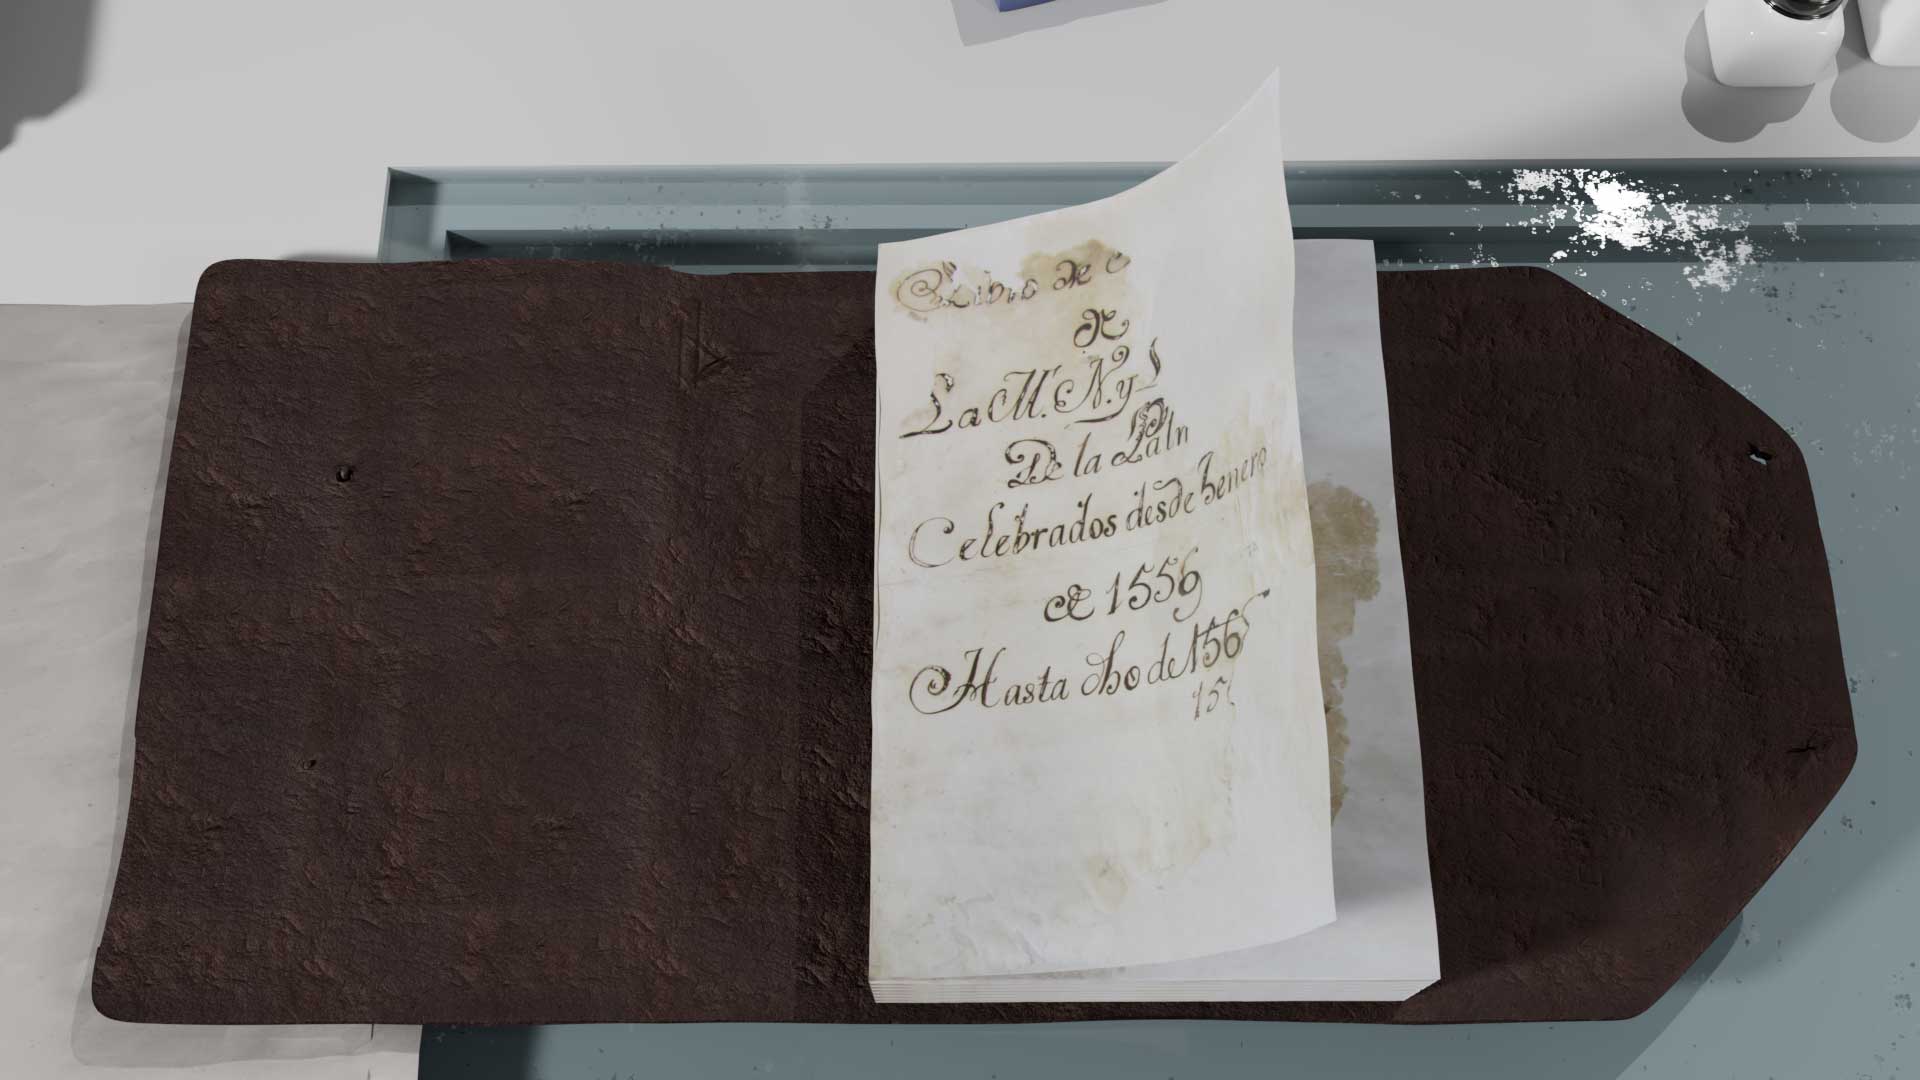 Libro de
de
La M. N. y
De la Palm
Celebrados desde henero
de 1556
Hasta dho de 156
15